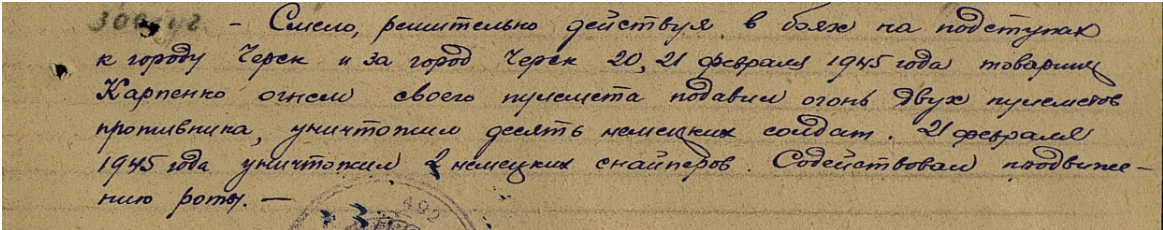 - Смело, решительно действуя в боях на подступах
к городу Черск и за город Черск 20, 21 февраля 1945 года товарищ
Карпенко огнем своего пулемета подавил огонь двух пулеметов
противника, уничтожил десять немецких солдат. 21 февраля
1945 года уничтожил 2 немецких снайперов. Содействовал продвиже-
нию роты. -
492